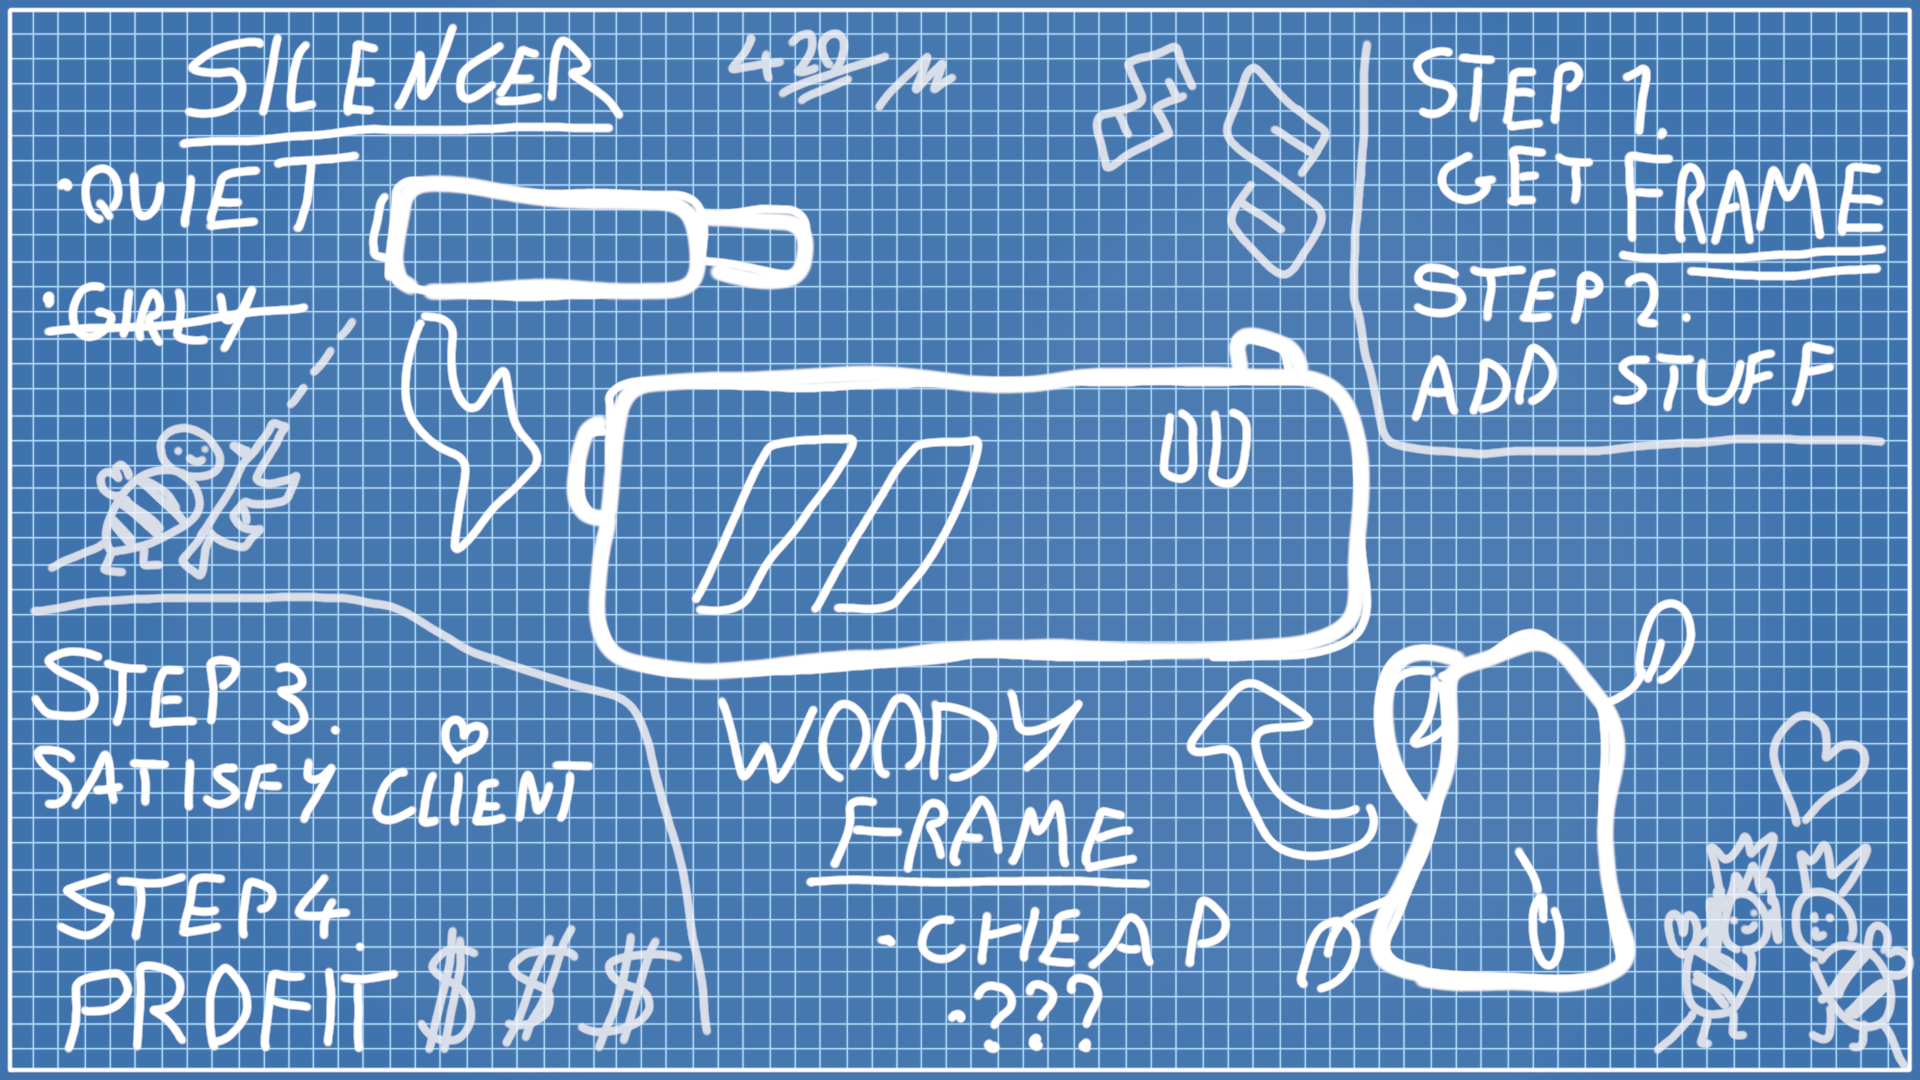 SILENCER
420/M
• QUIET
• GIRLY
STEP 1.
GET FRAME
STEP 2.
ADD STUFF
STEP 3.
SATISFY CLIENT
STEP 4.
PROFIT $ $ $
WOODY
FRAME
• CHEAP
• ???